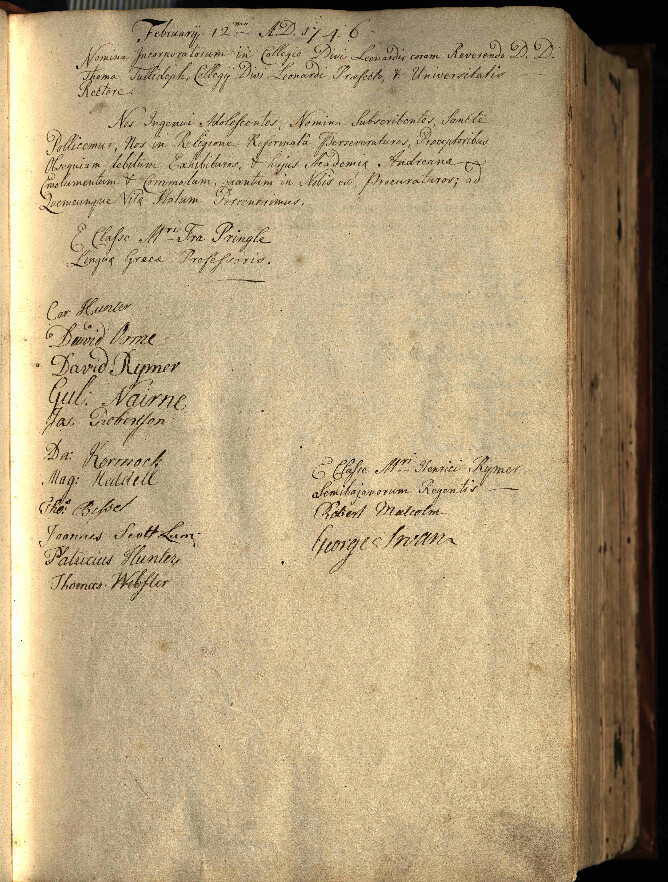 Februarij 12mo A.D. 1746
Nomina Incorporatorum in Collegio Divi Leonardi coram Reverendo D. D.
Thoma Tullidelph, Collegij Divi Leonardi Præfecto, & Universitatis
Rectore.
Nos Ingenui Adolescentes, Nomina Subscribentes, Sancte
Pollicemur, Nos in Religione Reformata Perseveraturos, Præceptoribus
Obsequium debitum Exhibituros, & hujus Academiæ Andreanæ
Emolumentum & Commodum, quantum in Nobis est Procuraturos; ad
Quemcunque Vitæ Statum Pervenerimus.
E Classe Mri Fra Pringle
Linguæ Græcæ Professoris.
Car Hunter
David Orme
David Rymer
Gul: Nairne
Jas. Robertson
Da: Kermock
Mag:
Tho:
Joannes Scott
Patricius Hunter
Thomas Webster
E Classe Mri Henrici Rymer
Semibajanorum Regentis
Robert Malcolm
George